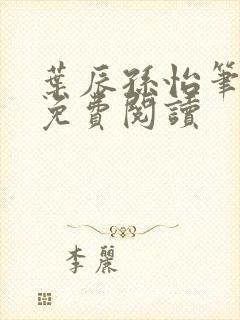 葉辰孫怡筆
免費閱讀
李麗